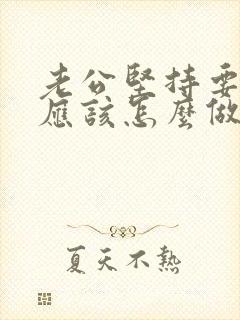 老公堅持要
應該怎麼做
夏天不熱